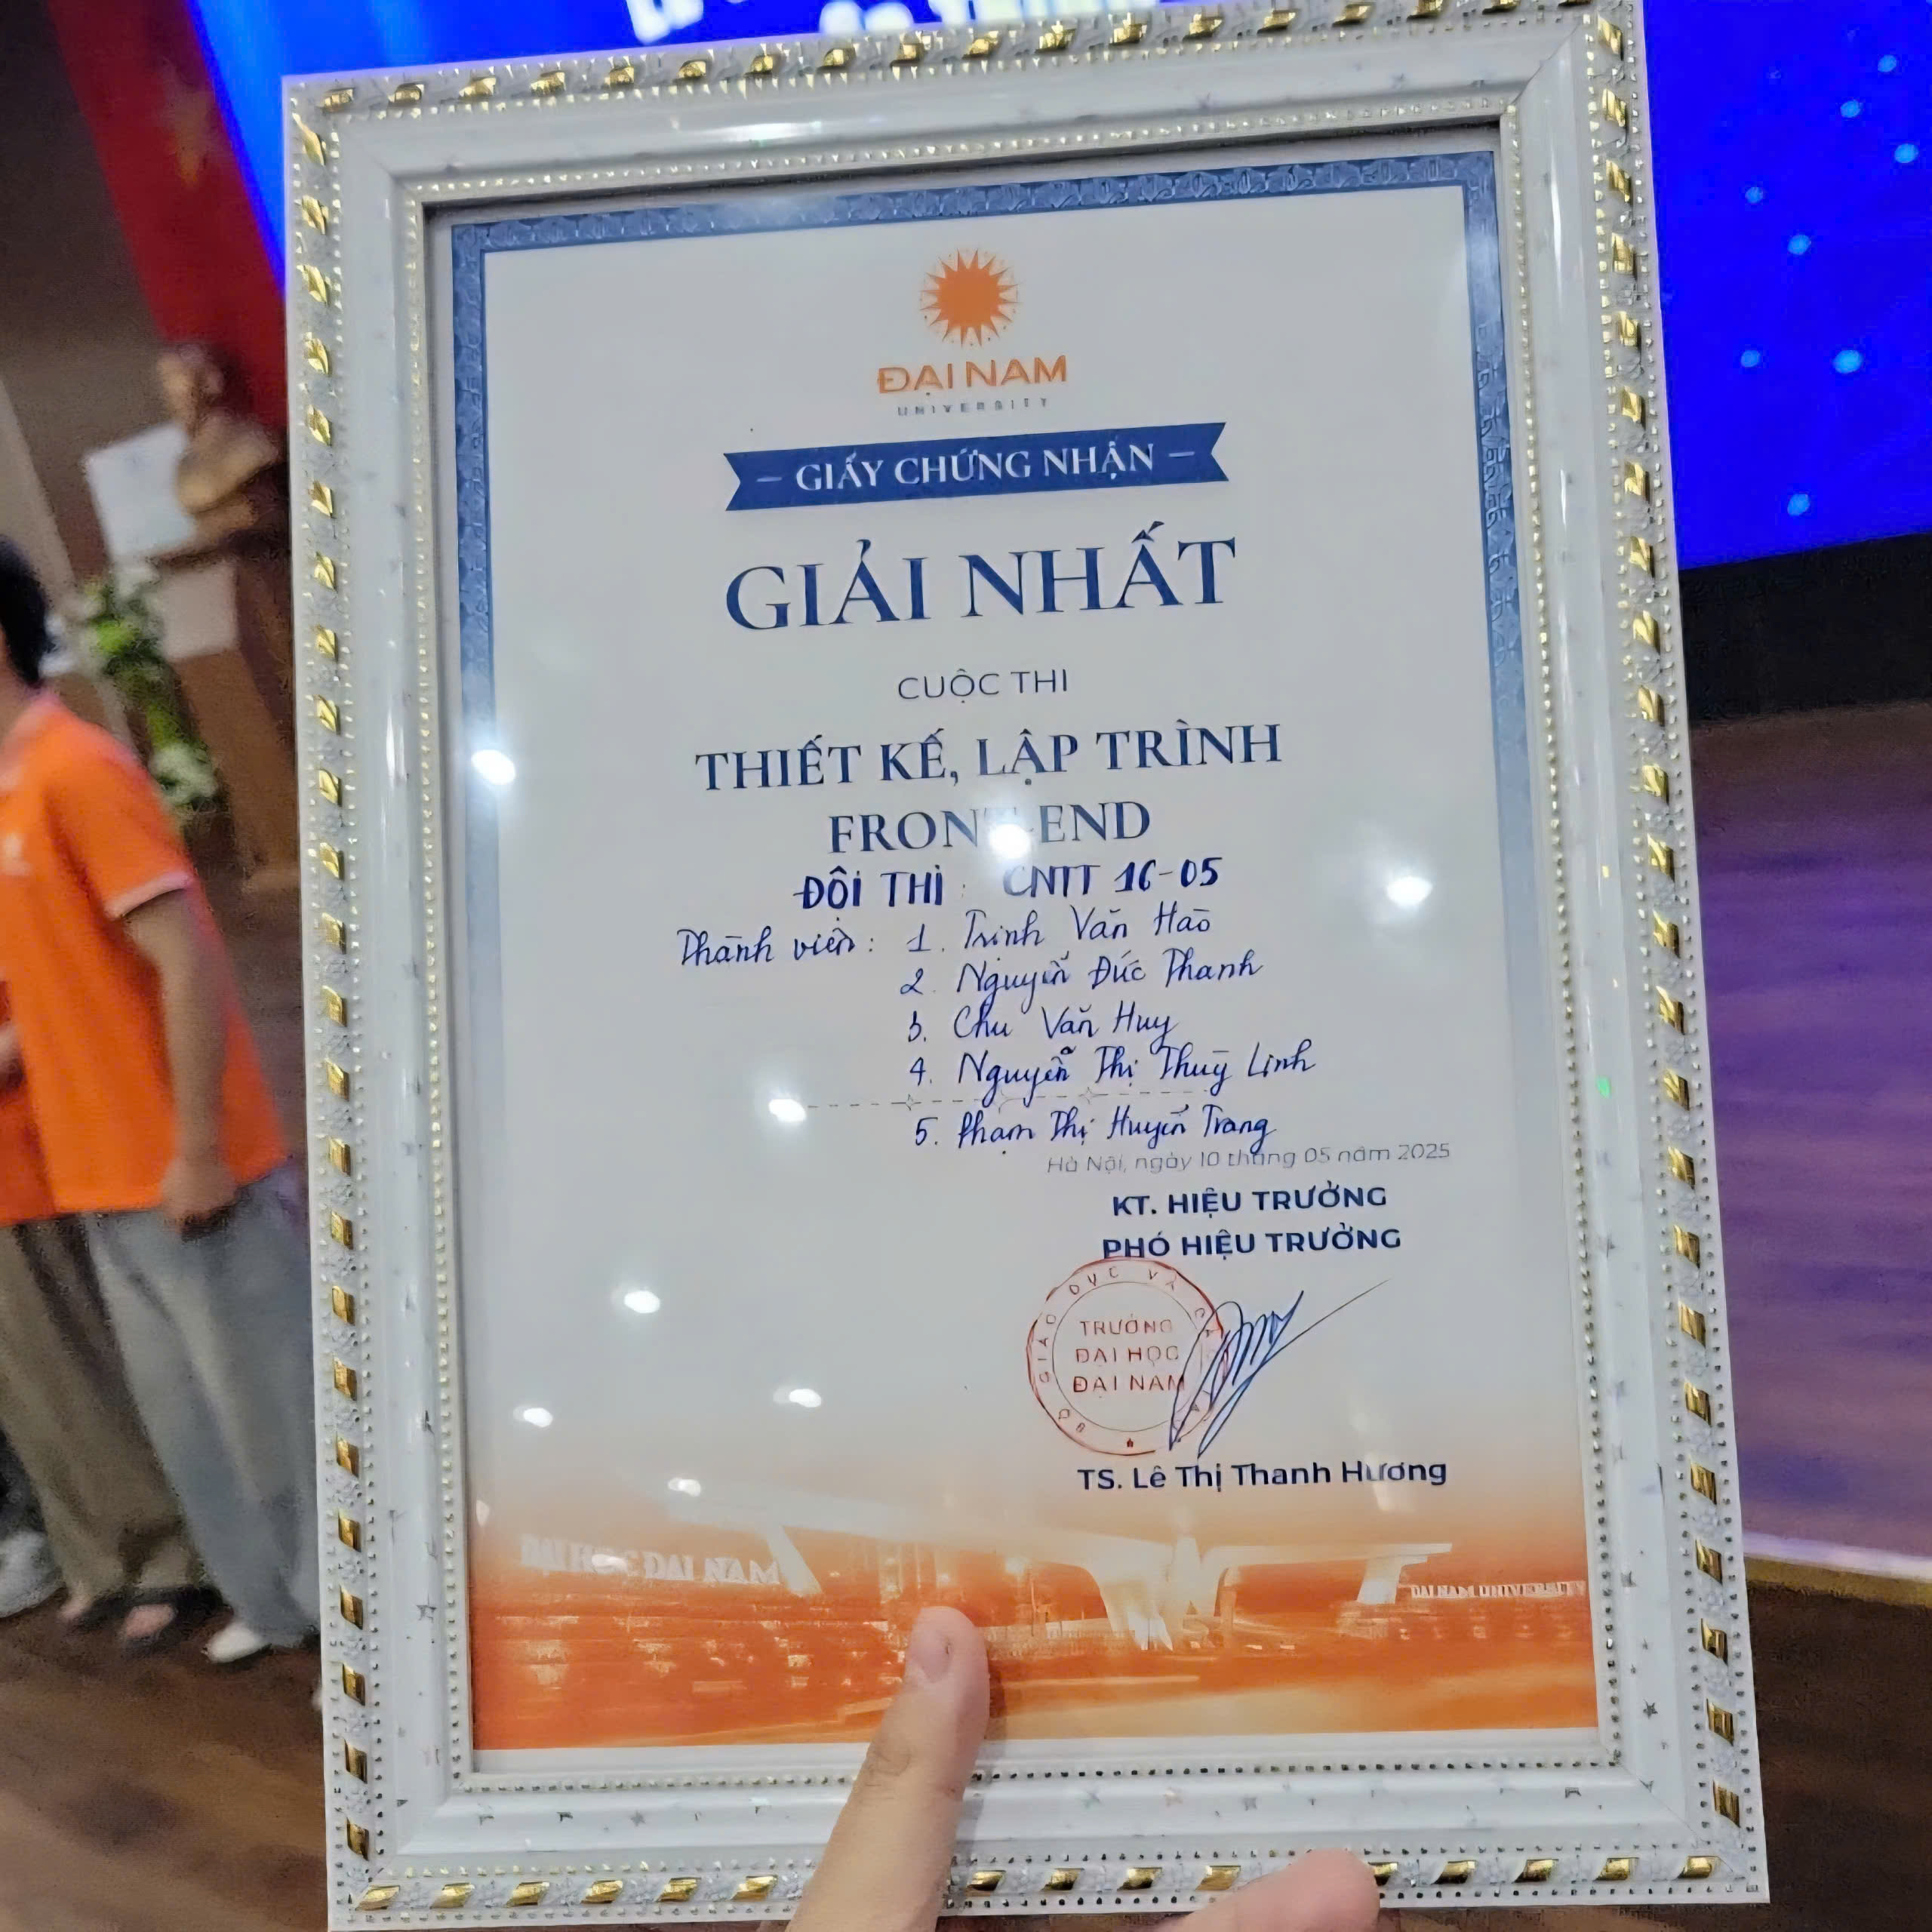 ĐẠI NAM
UNIVERSITY
GIẤY CHỨNG NHẬN
GIẢI NHẤT
CUỘC THI
THIẾT KẾ, LẬP TRÌNH
FRONT-END
ĐỘI THI: CNTT 16-05
Thành viên: 1. Trịnh Văn Hào
2. Nguyễn Đức Thanh
3. Chu Văn Huy
4. Nguyễn Thị Thuỳ Linh
5. Phạm Thị Huyền Trang
Hà Nội, ngày 10 tháng 05 năm 2025
KT. HIỆU TRƯỞNG
PHÓ HIỆU TRƯỞNG
BỘ GIÁO DỤC VÀ
TRƯỜNG
ĐẠI HỌC
ĐẠI NAM
TS. Lê Thị Thanh Hương
ĐẠI HỌC ĐẠI NAM
DAI NAM UNIVERSITY